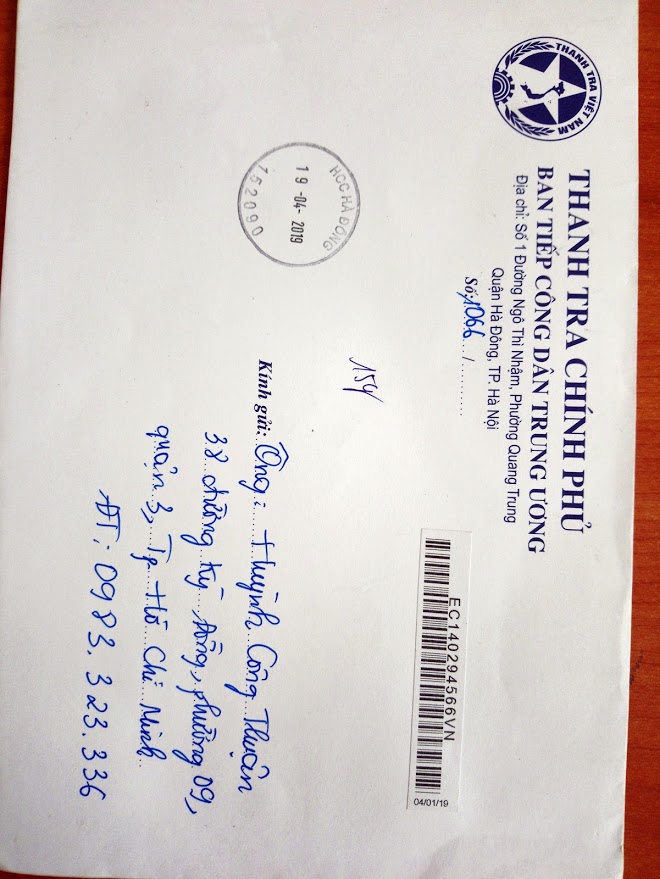 THANH TRA VIỆT NAM
THANH TRA CHÍNH PHỦ
BAN TIẾP CÔNG DÂN TRUNG ƯƠNG
Địa chỉ: Số 1 Đường Ngô Thì Nhậm, Phường Quang Trung
Quận Hà Đông, TP. Hà Nội
Số:1066.../..........
EC140294566VN
04/01/19
HCC HÀ ĐÔNG
19-04-2019
152090
154
Kính gửi: Ông: Huỳnh Công Thuận
38 đường Kỳ Đồng, phường 09,
quận 3, Tp Hồ Chí Minh
ĐT: 0983.323.336